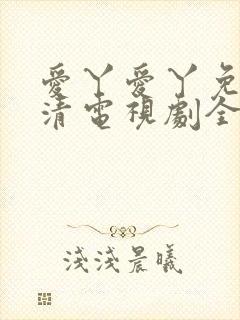 愛丫愛丫免
清電視劇全
淺淺晨曦